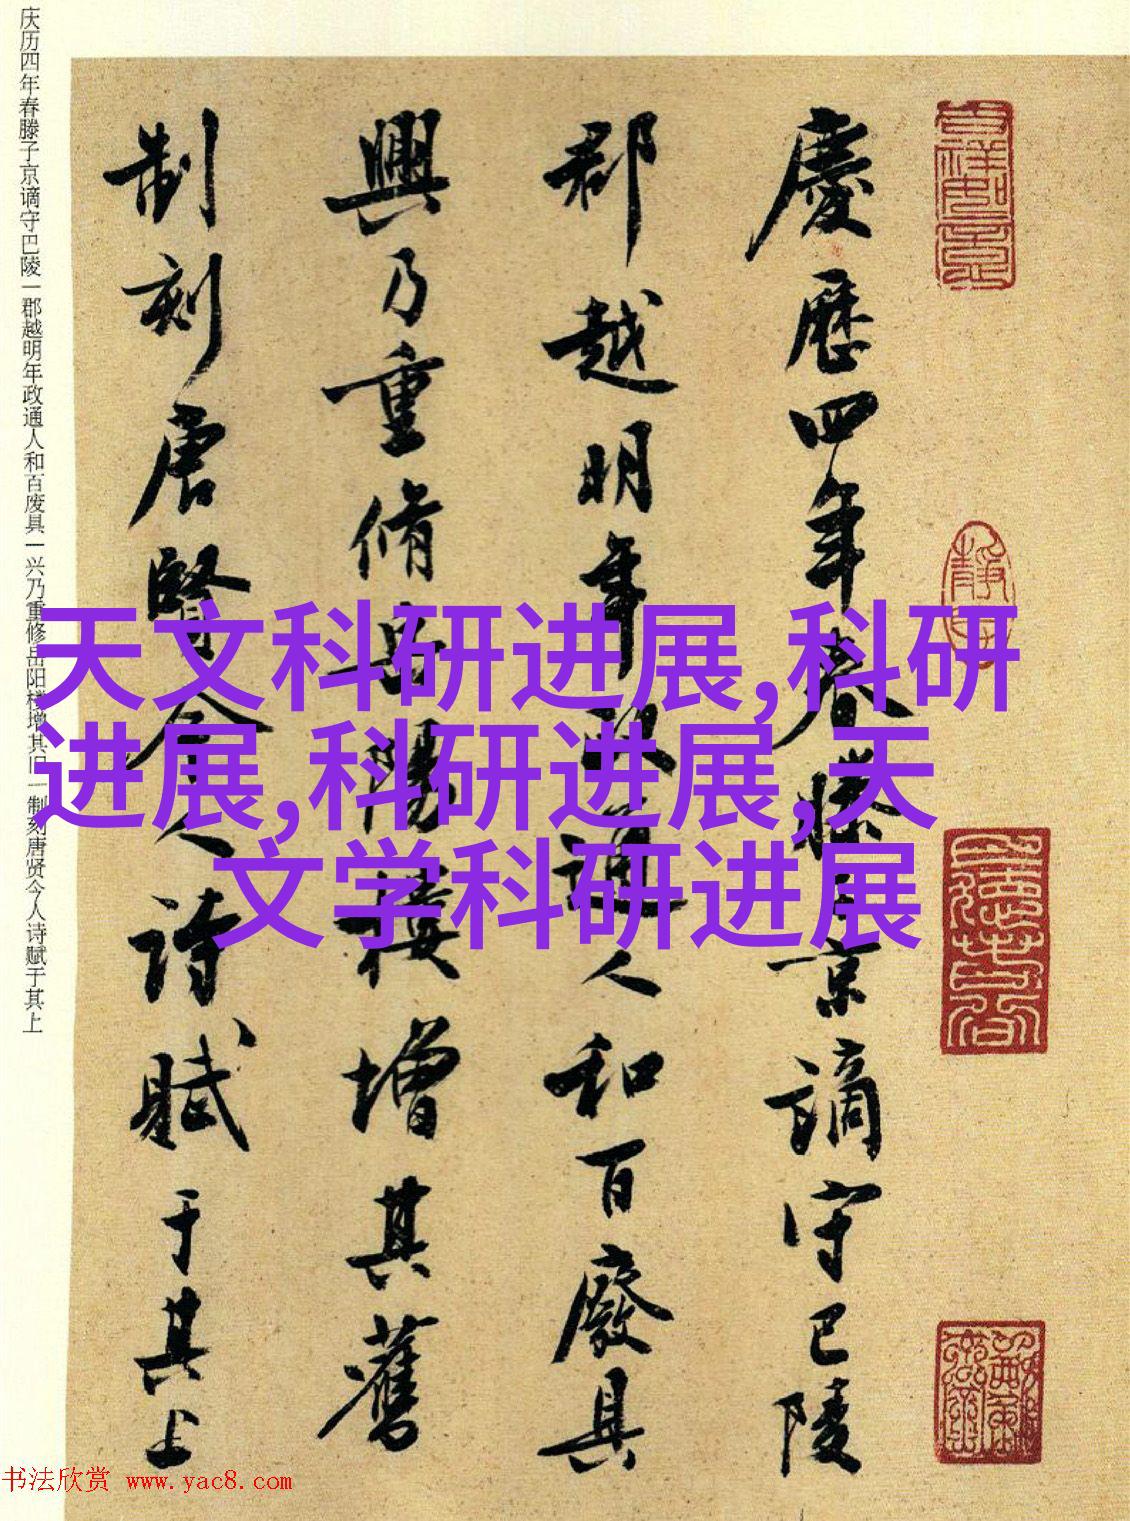 慶歷四年春滕子京謫守巴陵
郡越明年政通人和百廢具
興乃重脩岳陽樓增其舊
制刻唐賢今人詩賦于其上
庆历四年春滕子京谪守巴陵一郡越明年政通人和百废具一兴乃重修岳阳楼增其旧一制刻唐贤今人诗赋于其上
天文科研进展,科研
进展,科研进展,天
文学科研进展
书法欣赏 www.yac8.com